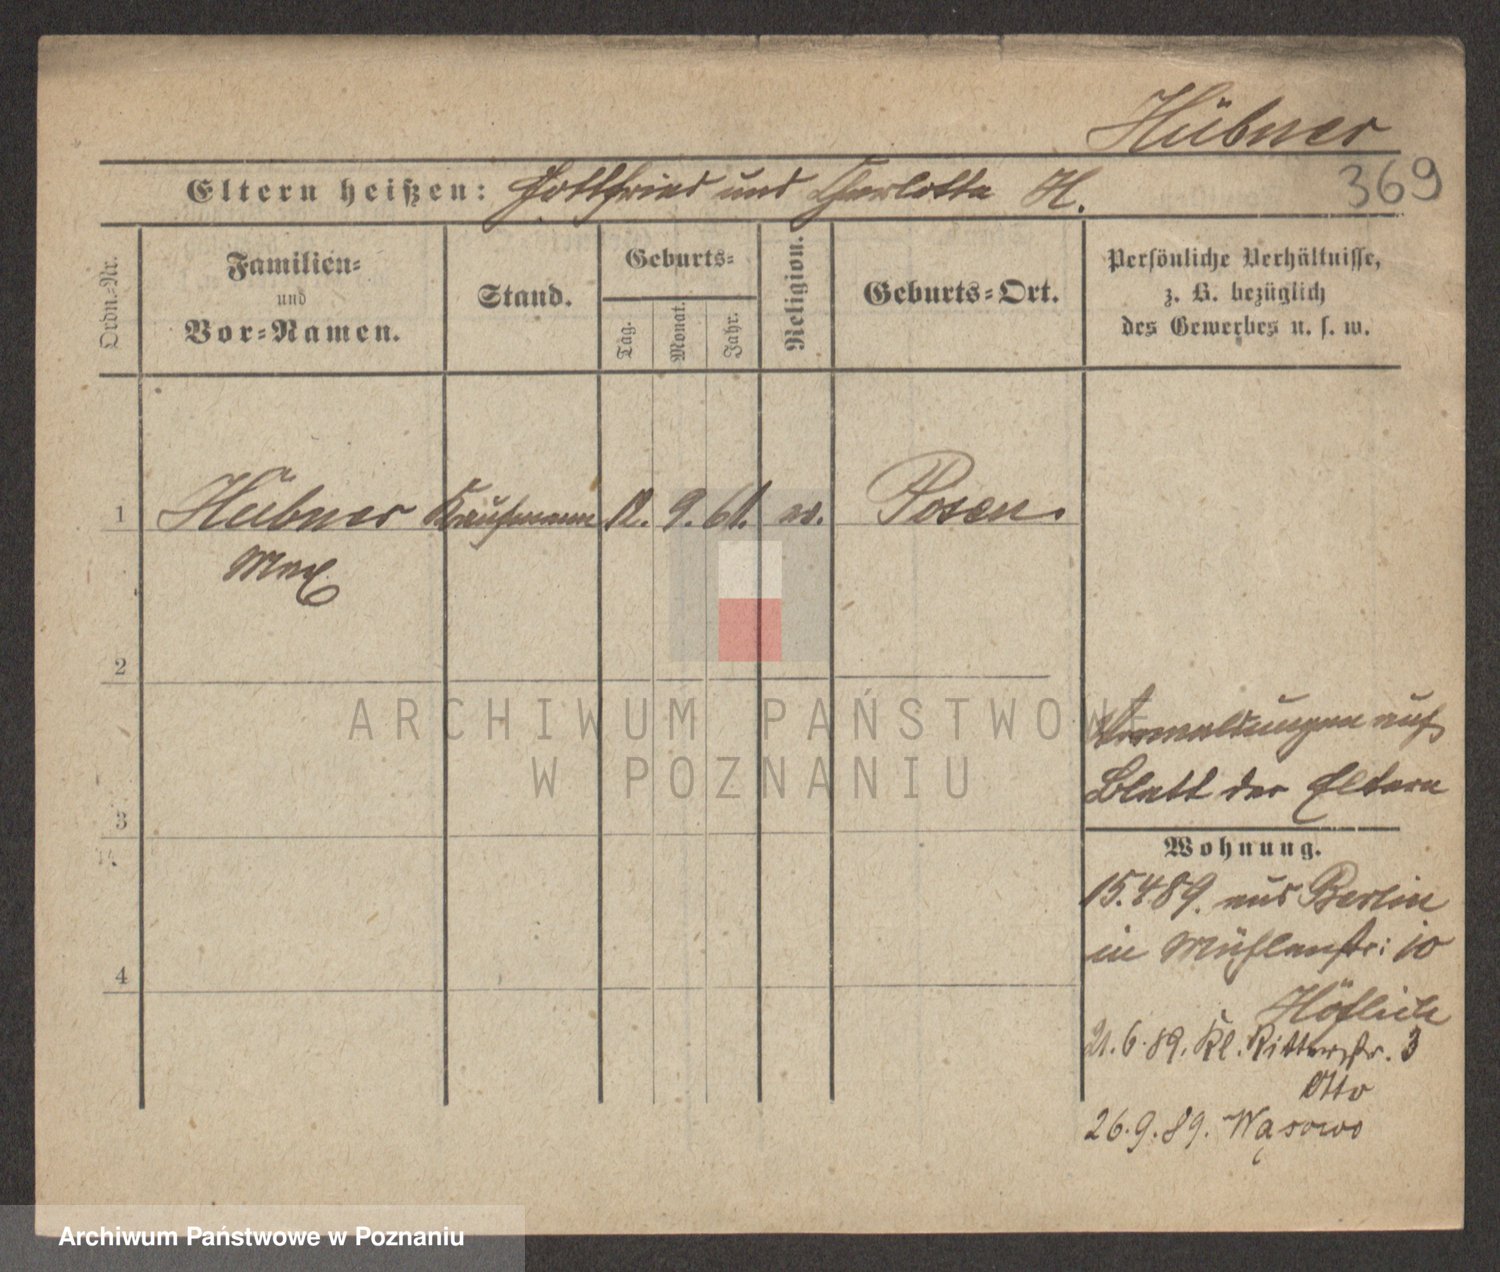 Hübner
369
Eltern heißen: Gottfried und Charlotte H.
Ordn.-Nr.
Familien-
und
Vor-Namen.
Stand.
Geburts-
Tag.
Monat.
Jahr.
Religion.
Geburts-Ort.
Persönliche Verhältnisse,
z. B. bezüglich
des Gewerbes u. s. w.
1 Hübner Kaufmann 12. 9. 61. ev. Posen.
Max
2
3
4
Anmeldungen auf
Blatt der Eltern
Wohnung.
15.4.89. aus Berlin
in Mühlenstr: 10
Höflich
21.6.89. Kl. Ritterstr. 3
Otto
26.9.89. Wąsowo
ARCHIWUM PAŃSTWOWE
W POZNANIU
Archiwum Państwowe w Poznaniu